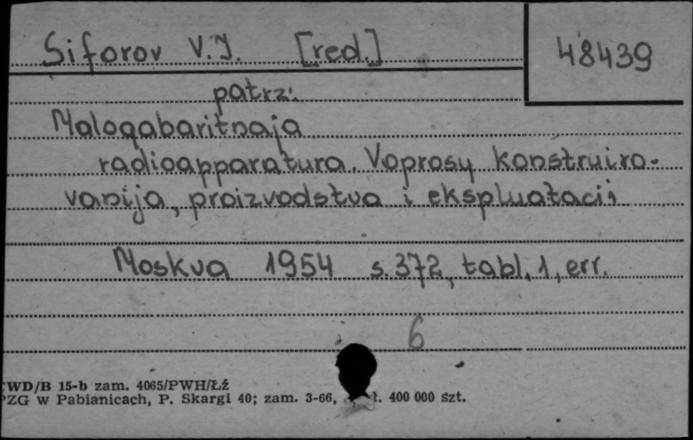 Siforov V.I. [red.]
48439
patrz:
Malogabaritnaja
radioapparatura. Voprosy konstruiro-
vanija, proizvodstva i ekspluatacii
Moskva 1954 s. 372, tabl. 1, err.
6
CWD/B 15-b zam. 4065/PWH/Łź
PZG w Pabianicach, P. Skargi 40; zam. 3-66, 400 000 szt.